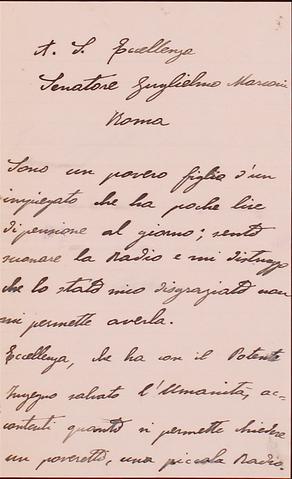 A. S. Eccellenza
Senatore Guglielmo Marconi
Roma
Sono un povero figlio d'un
impiegato che ha poche lire
di pensione al giorno; sento
suonare la Radio e mi distruggo
che lo stato mio disgraziato non
mi permette averla.
Eccellenza, che ha con il Potente
Ingegno salvato l'Umanità, ac-
contenti quanto si permette chiedere
un poveretto, una piccola Radio.